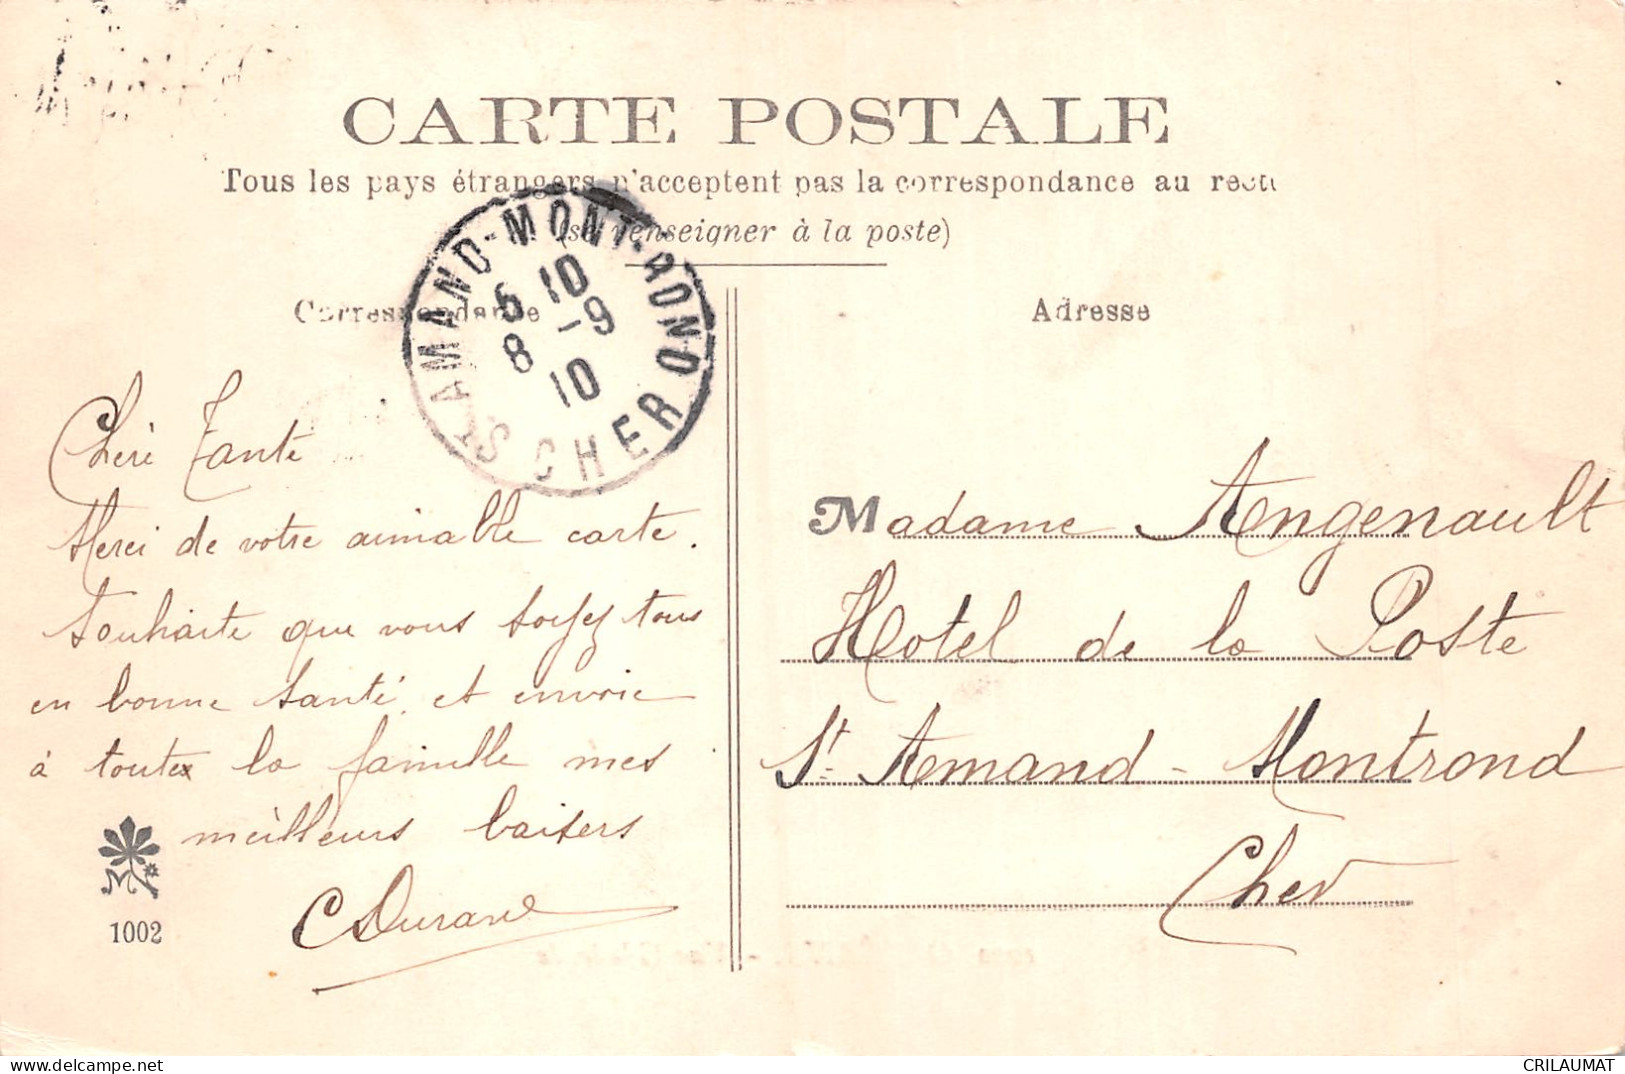 CARTE POSTALE
Tous les pays étrangers n'acceptent pas la correspondance au recto
(se renseigner à la poste)
Correspondance
Adresse
ST AMAND-MONT-ROND
CHER
6 10
8 -9
10
Chère Tante
Merci de votre aimable carte.
Souhaite que vous soyez tous
en bonne santé, et envoie
à toutex la famille mes
meilleurs baisers
C Durand
1002
Madame Angenault
Hotel de la Poste
St Amand - Montrond
Cher
CRILAUMAT